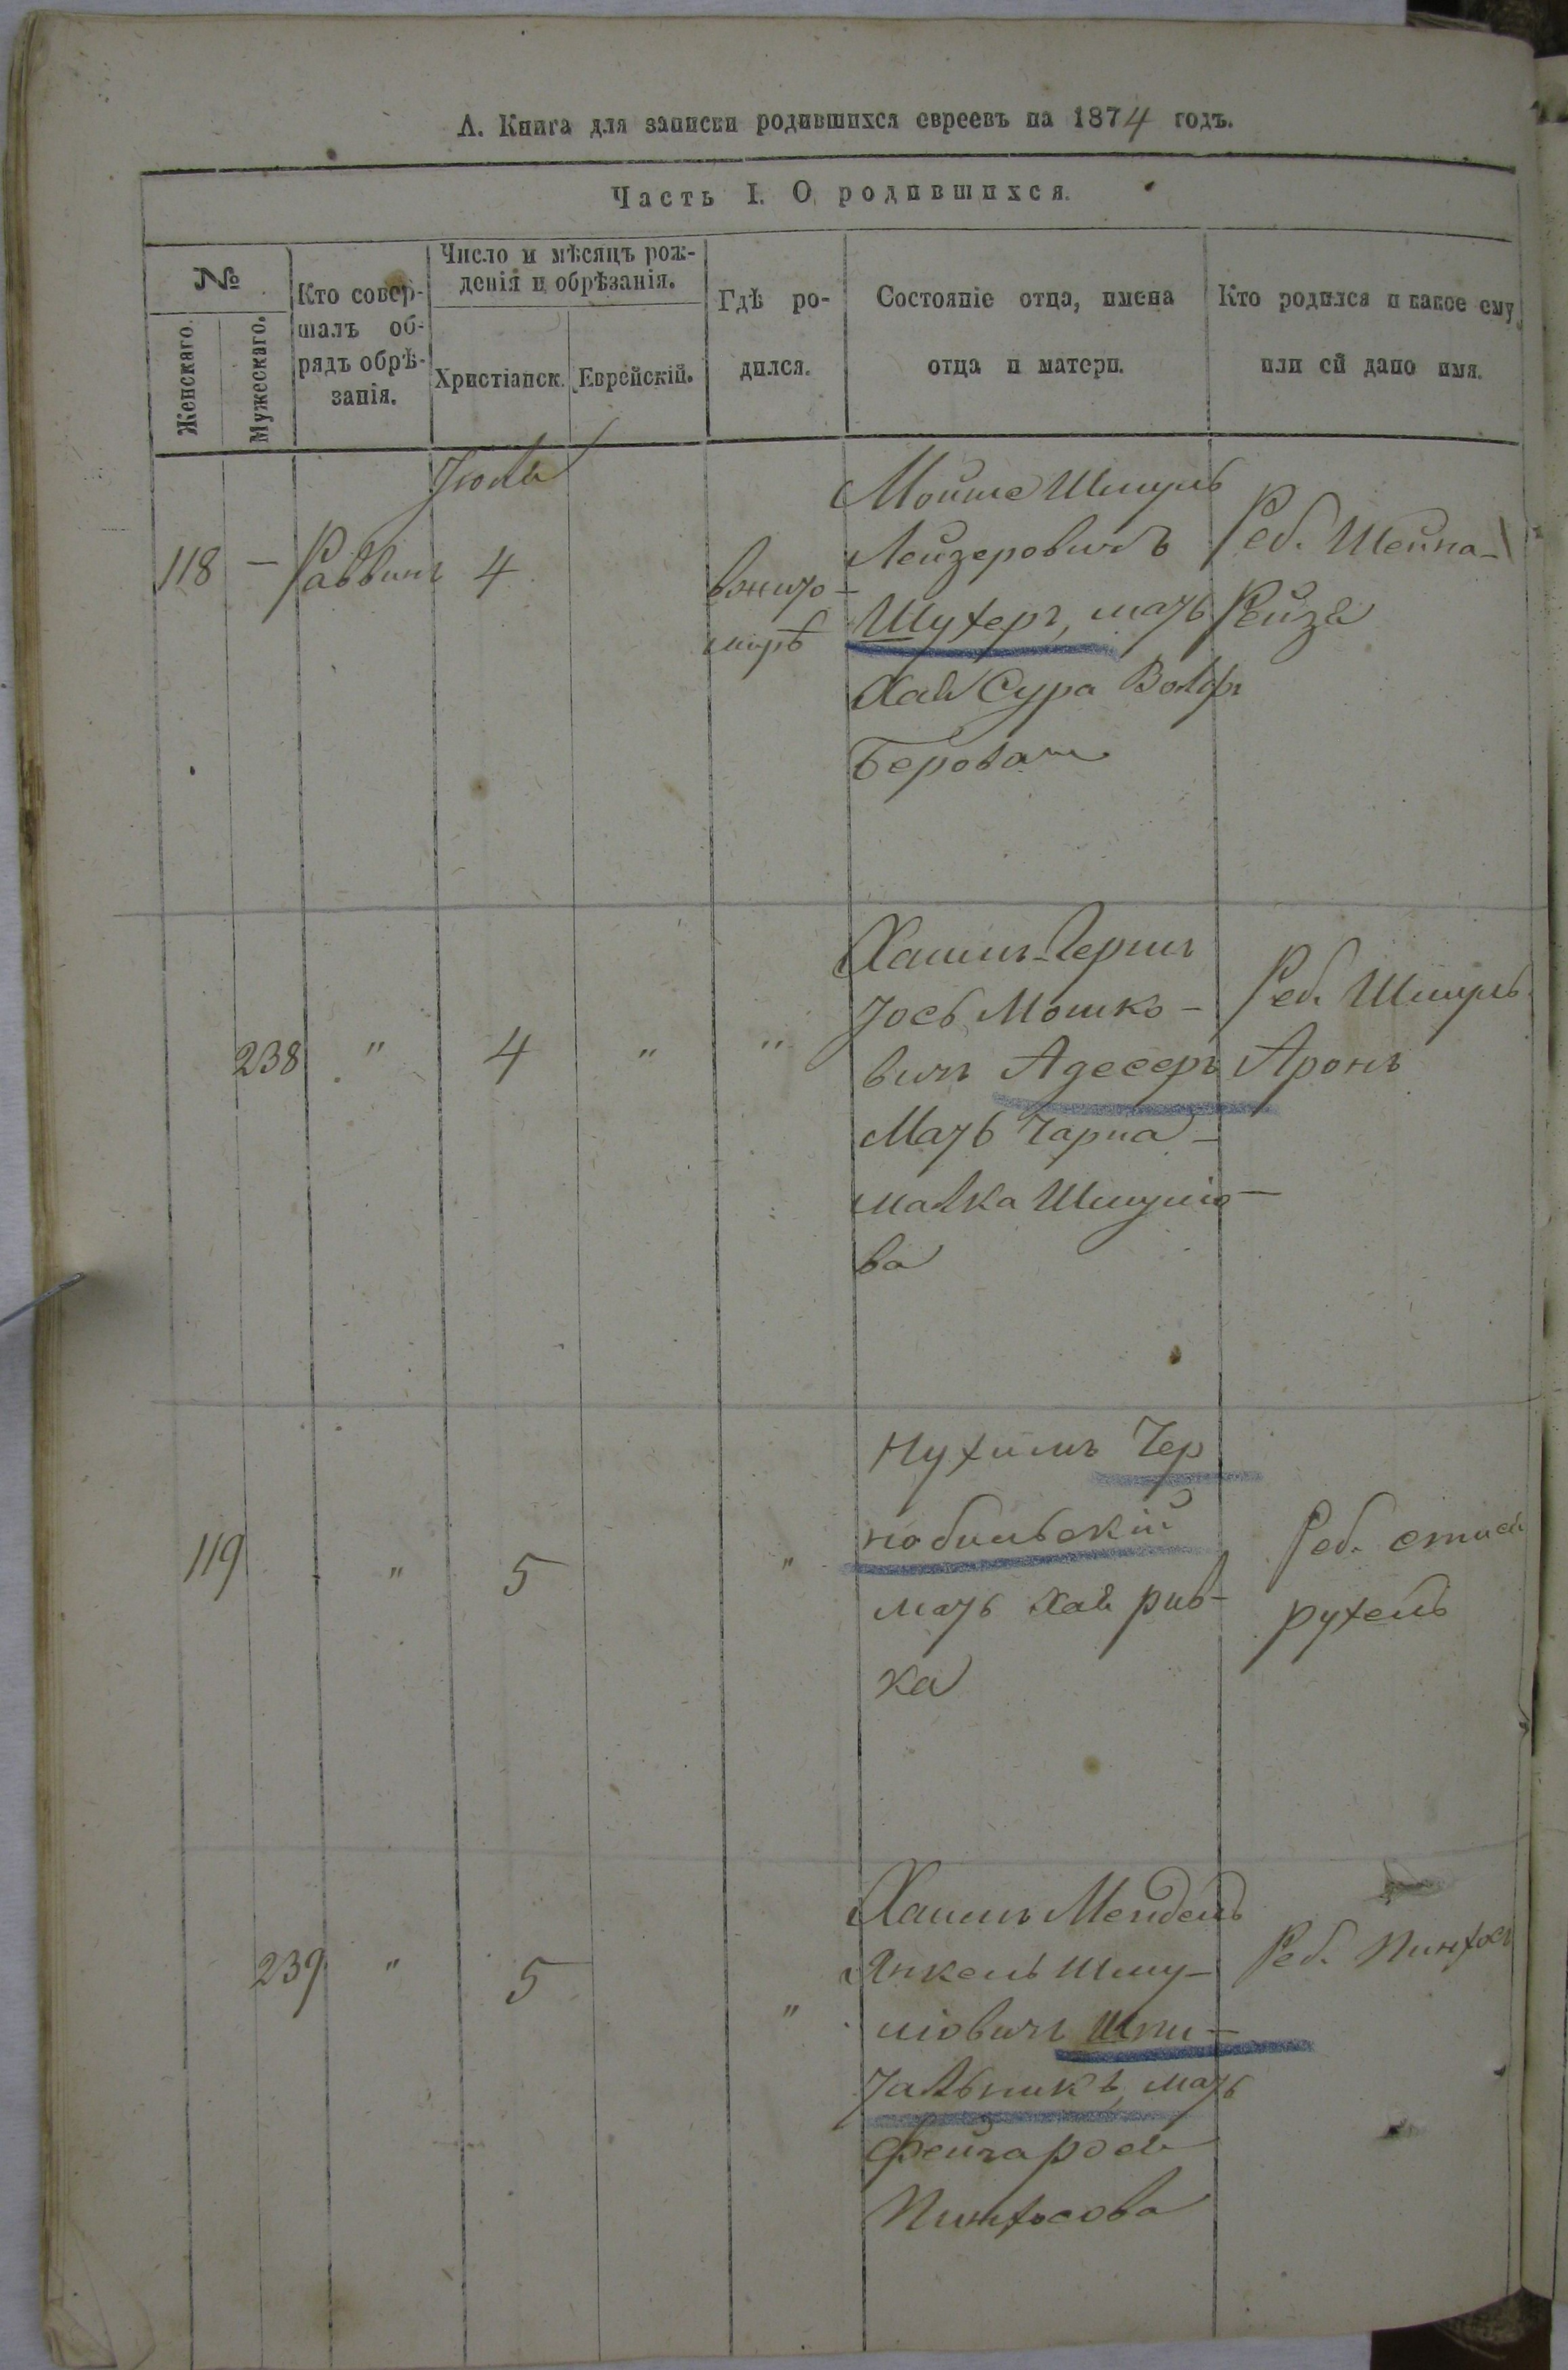 А. Книга для записки родившихся евреевъ на 1874 годъ.
Часть I. О родившихся.
№
Женскаго.
Мужескаго.
Кто совер-
шалъ об-
рядъ обрѣ-
занія.
Число и мѣсяцъ рож-
денія и обрѣзанія.
Христіанск.
Еврейскій.
Гдѣ ро-
дился.
Состояніе отца, имена
отца и матери.
Кто родился и какое ему
или ей дано имя.
Іюль
118 — Раввинъ 4
вжито-
мирѣ
Мойше Шмуль
Лейзеровичъ
Шухеръ, мать
Хая Сура Волфъ
Берова
Реб. Шейна-
Рейза
238 " 4 " "
Хаимъ-Герш
Іось Мошко-
вичъ Адесеръ
Мать Чарна-
малка Шмулiо-
ва
Реб. Шмуль
Аронъ
119 " 5 "
Нухимъ Чер
нобильскій
мать Хая рив-
ка
Реб.
рухель
239 " 5 "
Хаимъ Мендель
Янкель Шму-
ліовичъ Шпи-
тальникъ, мать
Фейга рося
Пинхосова
Реб. Пинхос